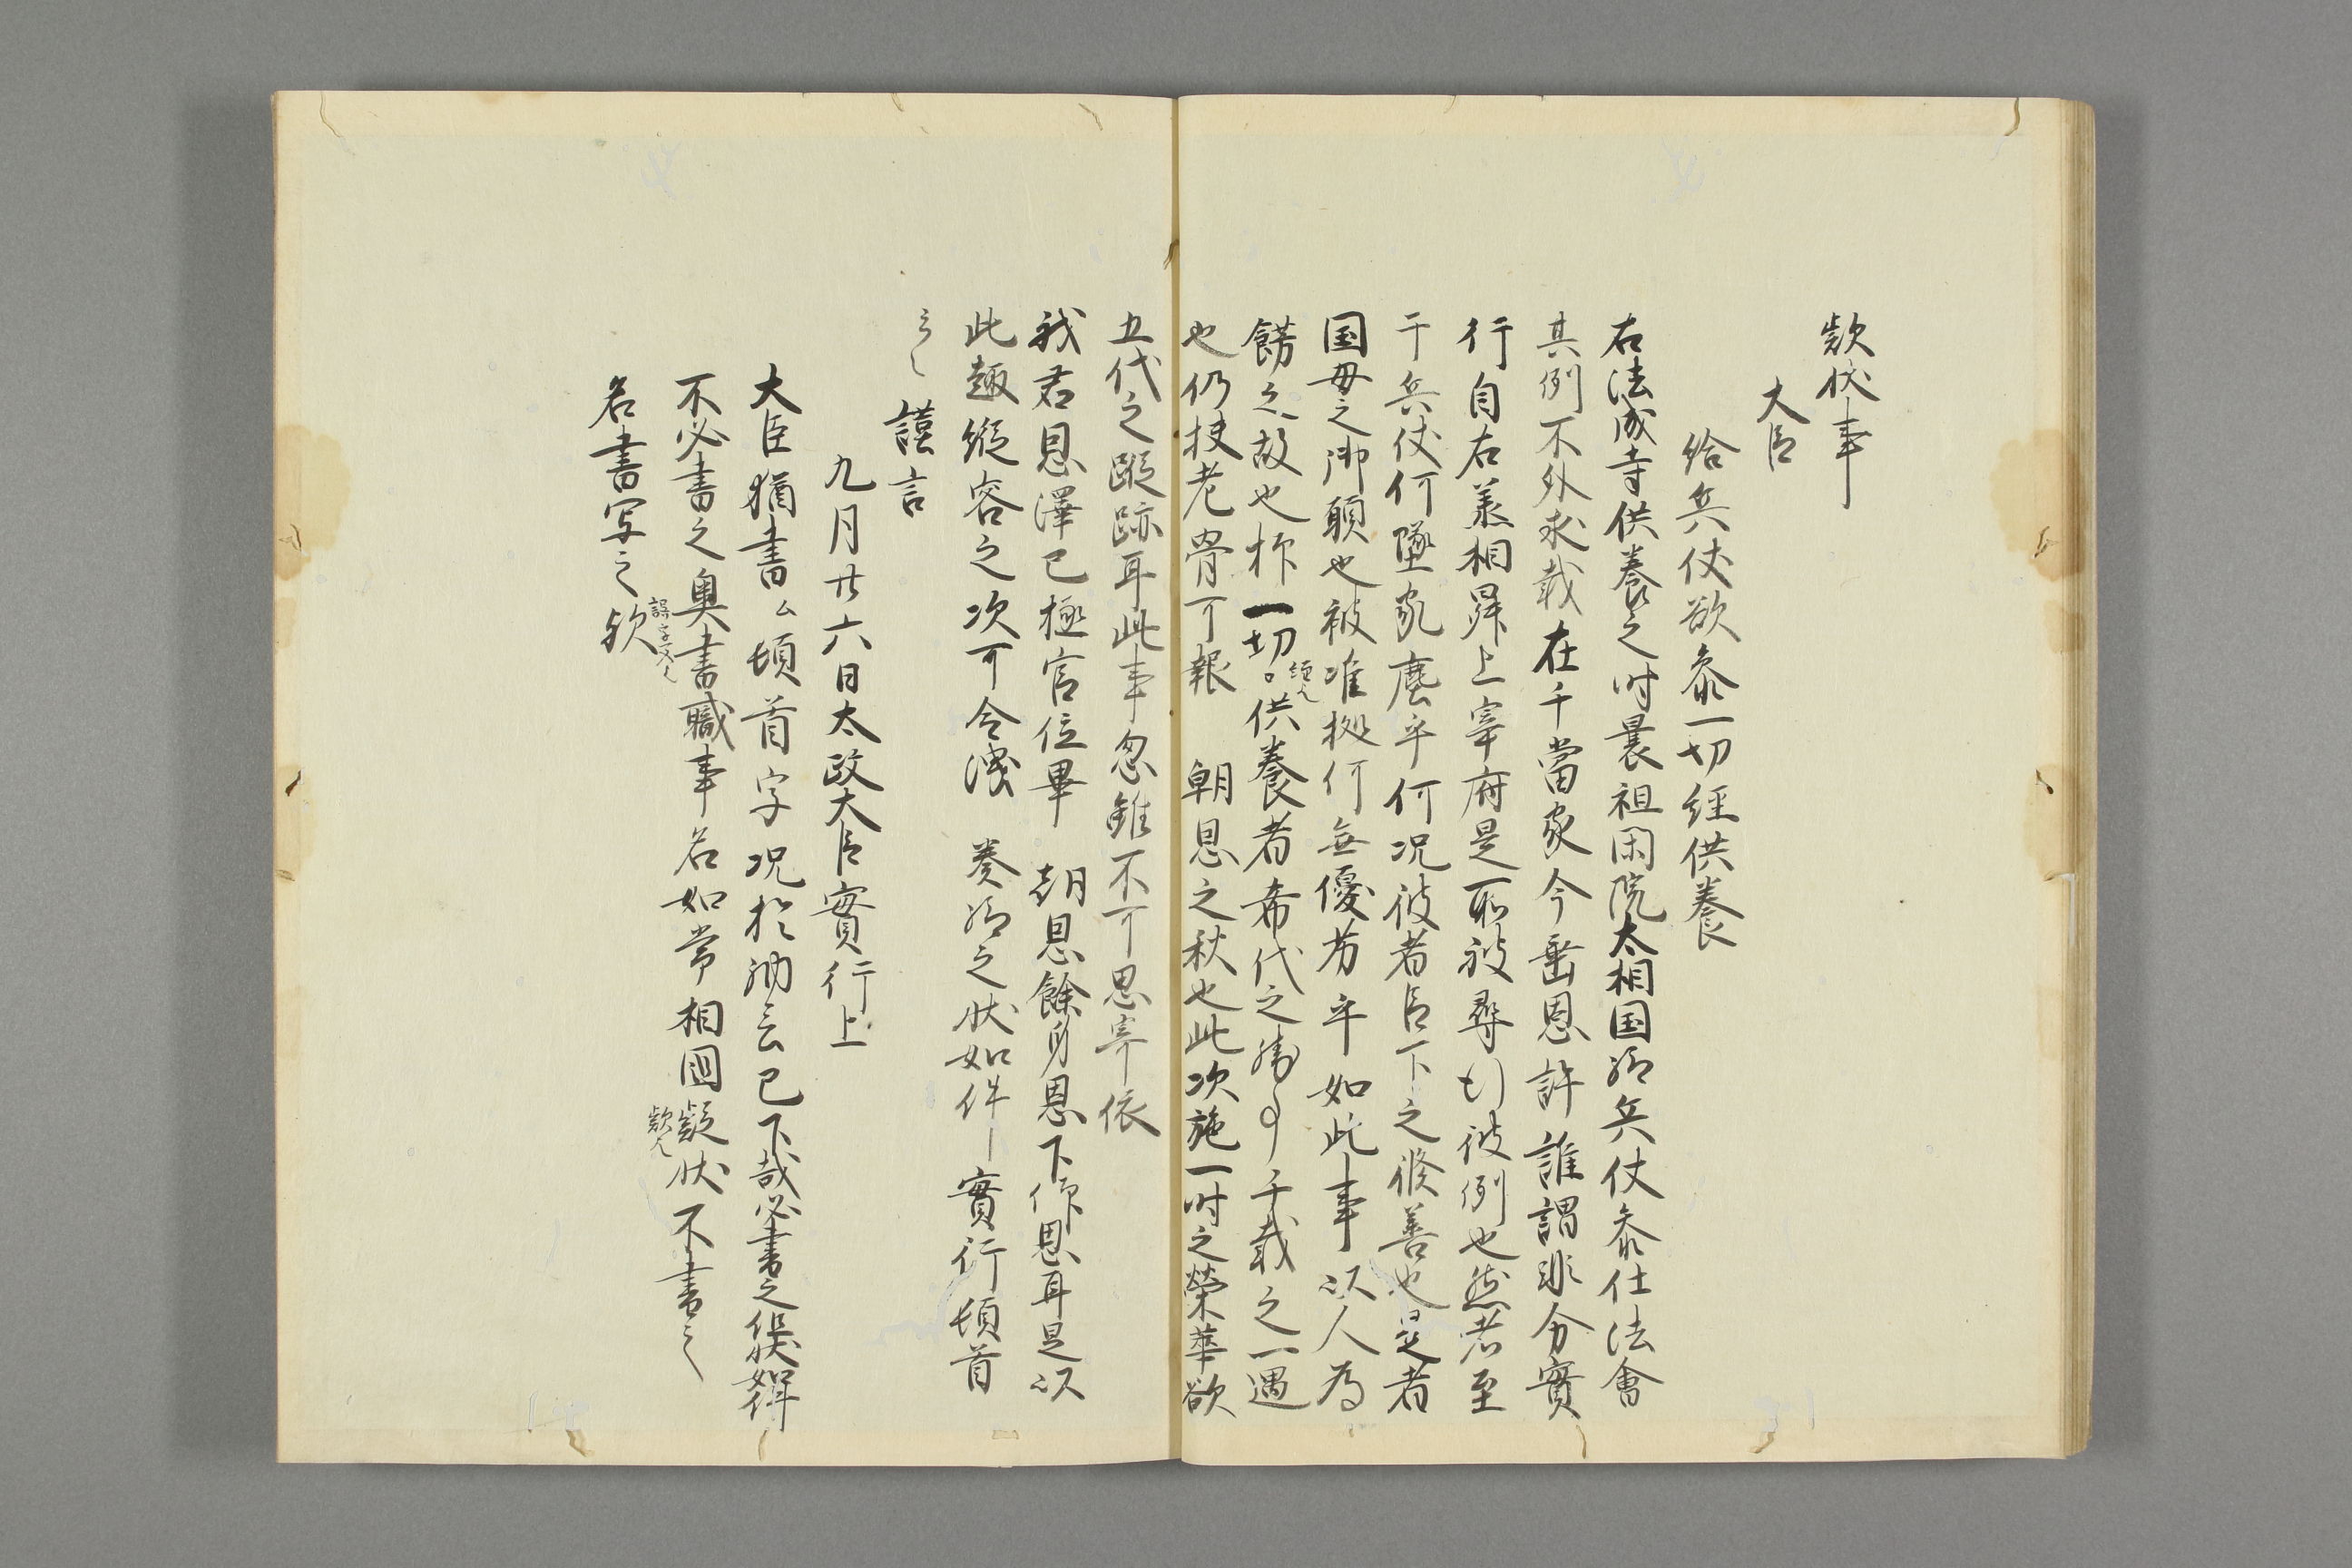 欵状事
大臣
給兵仗欲参一切経供養
右法成寺供養之時曩祖閑院太相国給兵仗参仕法會
其例不外求哉在于當家今垂恩許誰謂非分實
行自右丞相昇上宰府是所被尋行彼例也然者至
于兵仗何墜家塵乎何况彼者臣下之修善也是者
国母之御願也被准拠何無優労乎如此事以人為
餝之故也抑一切経供養者希代之勝事千載之一遇
也仍扶老骨可報 朝恩之秋也此次施一時之榮華欲
五代之蹤跡耳此事忽雖不可思寄依
我君恩澤已極官位畢 朝恩餘身恩下作恩耳是以
此趣縦容之次可令洩 奏給之状如件 實行頓首
々々謹言
九月廿六日太政大臣實行上
大臣猶書頓首字况於納言已下哉必書之候歟
不必書之奥書職事名如常相國疑状不書之
欵
名書写之欤
誤字